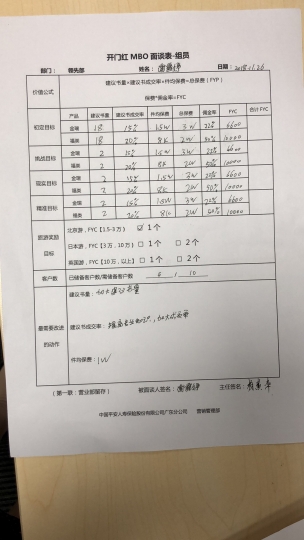 开门红 MBO 面谈表-组员
部门： 领先部 姓名： 日期：2018.11.26
价值公式 建议书量×建议书成交率×件均保费=总保费（FYP）
保费*佣金率=FYC
产品 建议书量 建议书成交率 件均保费 总保费 佣金率 FYC 合计 FYC
初定目标 金瑞 18 15% 1.5W 3W 22% 6600
福奕 18 20% 8K 2W 50% 10000
挑战目标 金瑞 2 15% 1.5W 3W 22% 6600
2 20% 8K 2W 50% 10000
现实目标 金瑞 2 15% 1.5W 3W 22% 6600
2 20% 8K 2W 50% 10000
精准目标 金瑞 2 15% 1.5W 3W 22% 6600
2 20% 8K 2W 50% 10000
旅游奖励目标 北京游，FYC【1.5-3 万】 ☑ 1个
日本游【3 万，10 万】 □ 1个 □ 2个
英国游，FYC【10 万，以上】 □ 1个 □ 2个
客户数 已储备客户数/需储备客户数 6 / 10
最需要改进的动作 建议书量：加大建议书量
建议书成交率：提高专业知识，加大成交率
件均保费：1W
（第一联：营业部留存） 被面谈人签名： 主任签名：
中国平安人寿保险股份有限公司广东分公司 营销管理部